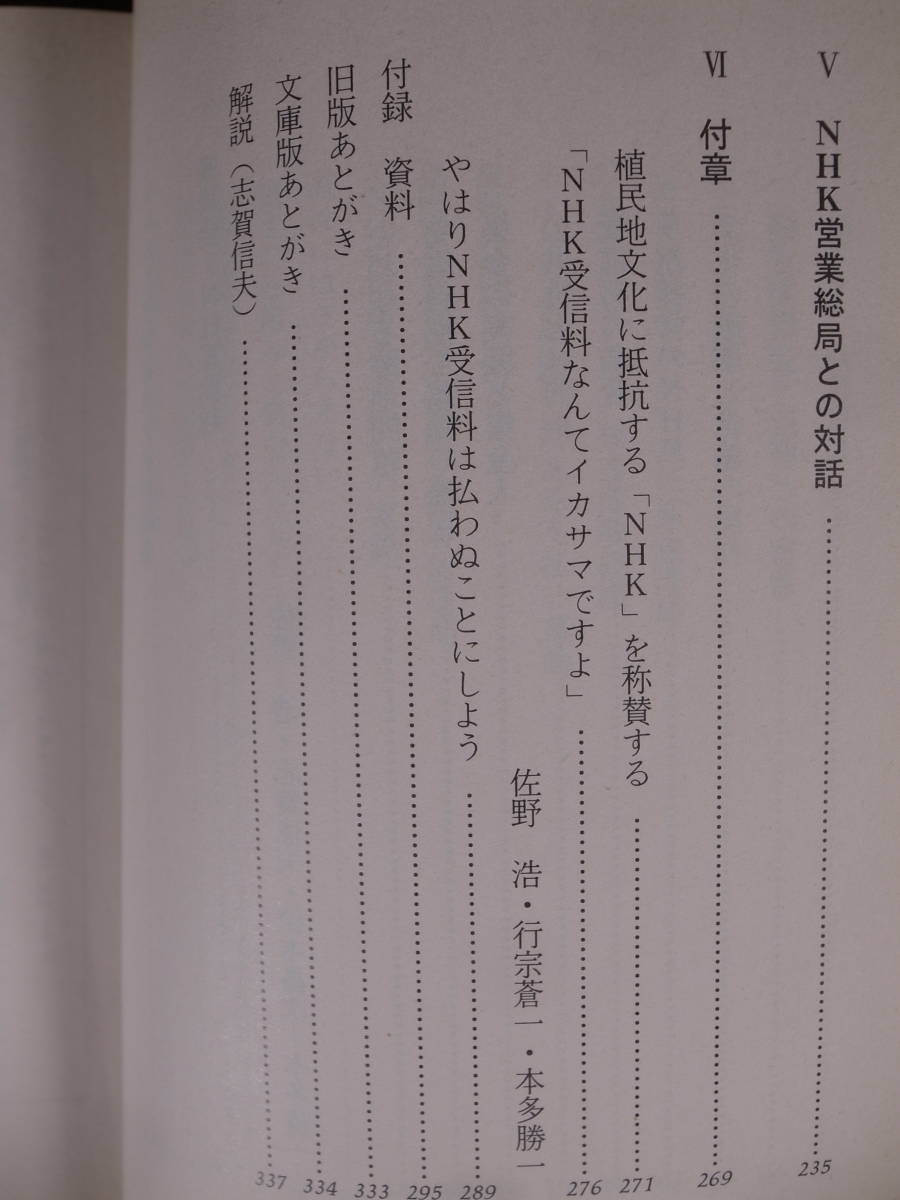 Ⅴ　NHK営業総局との対話……………235
Ⅵ　付章……………269
植民地文化に抵抗する「NHK」を称賛する……………271
「NHK受信料なんてイカサマですよ」……………276
佐野　浩・行宗蒼一・本多勝一
やはりNHK受信料は払わぬことにしよう……………289
付録　資料……………295
旧版あとがき……………333
文庫版あとがき……………334
解説（志賀信夫）……………337